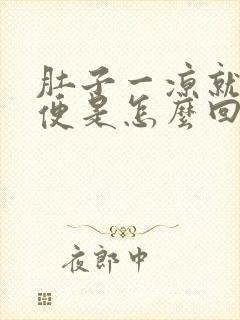 肚子一凉就
便是怎麼回
夜郎中